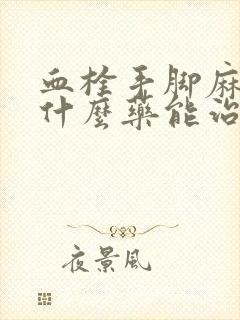 血栓手脚麻
什麼藥能治
夜景風